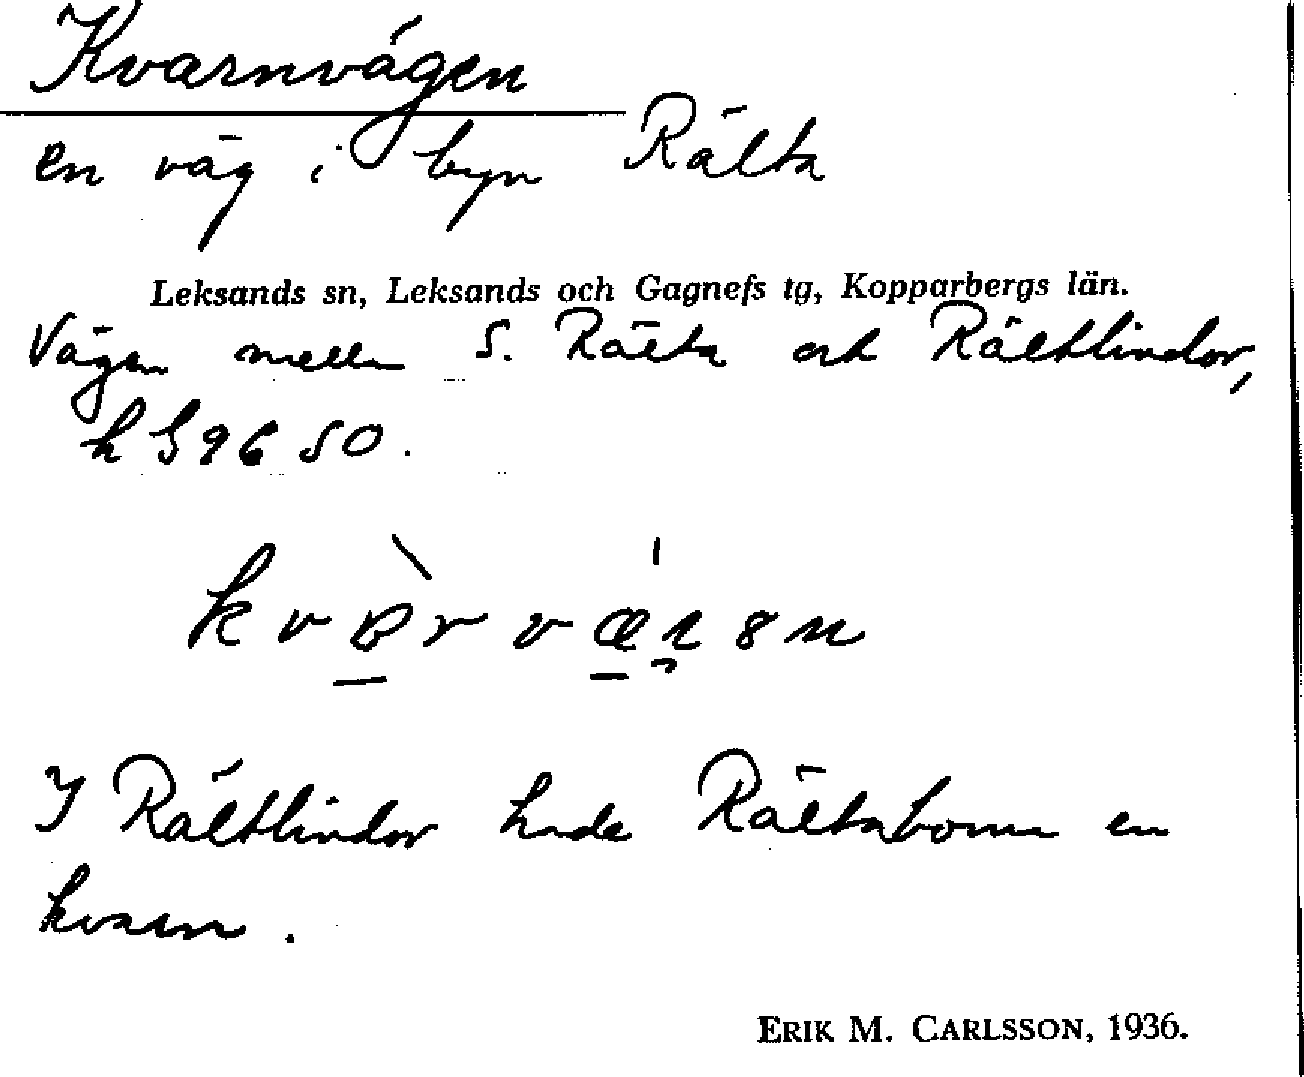 Kvarnvägen
en väg i byn Rälta
Leksands sn, Leksands och Gagnefs tg, Kopparbergs län.
Vägen mellan S. Rälta och Rältlindor,
50.
I Rältlindor hade Rältaborna en
kvarn.
ERIK M. CARLSSON, 1936.